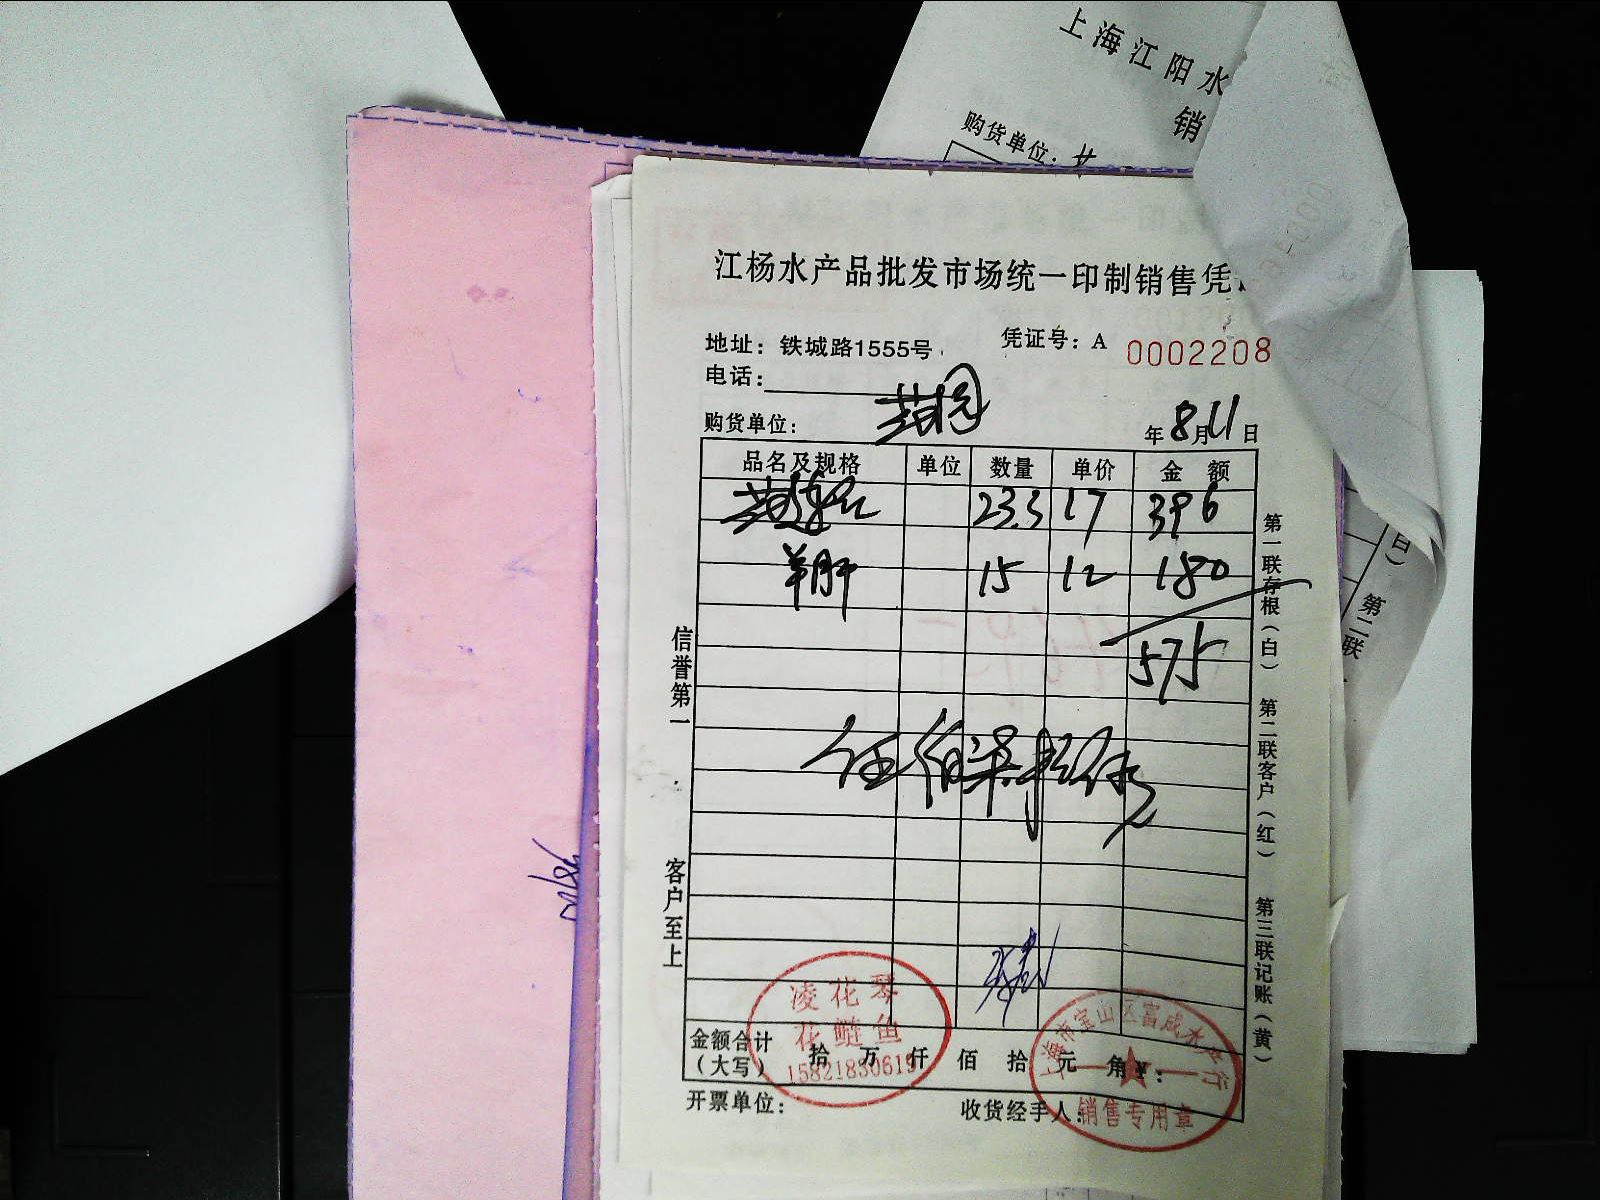 上海江阳水
销
购货单位：
江杨水产品批发市场统一印制销售凭
地址：铁城路1555号
凭证号：A 0002208
电话：
购货单位：
年8月11日
品名及规格 单位 数量 单价 金 额
23.3 17 396
15 12 180
575
信誉第一
客户至上
第一联存根（白） 第二联客户（红） 第三联记账（黄）
白）
第二联
凌花琴
花鲢鱼
15821830619
金额合计
（大写） 拾 万 仟 佰 拾 元 角
上海市宝山区富成水产行
销售专用章
开票单位：
收货经手人：